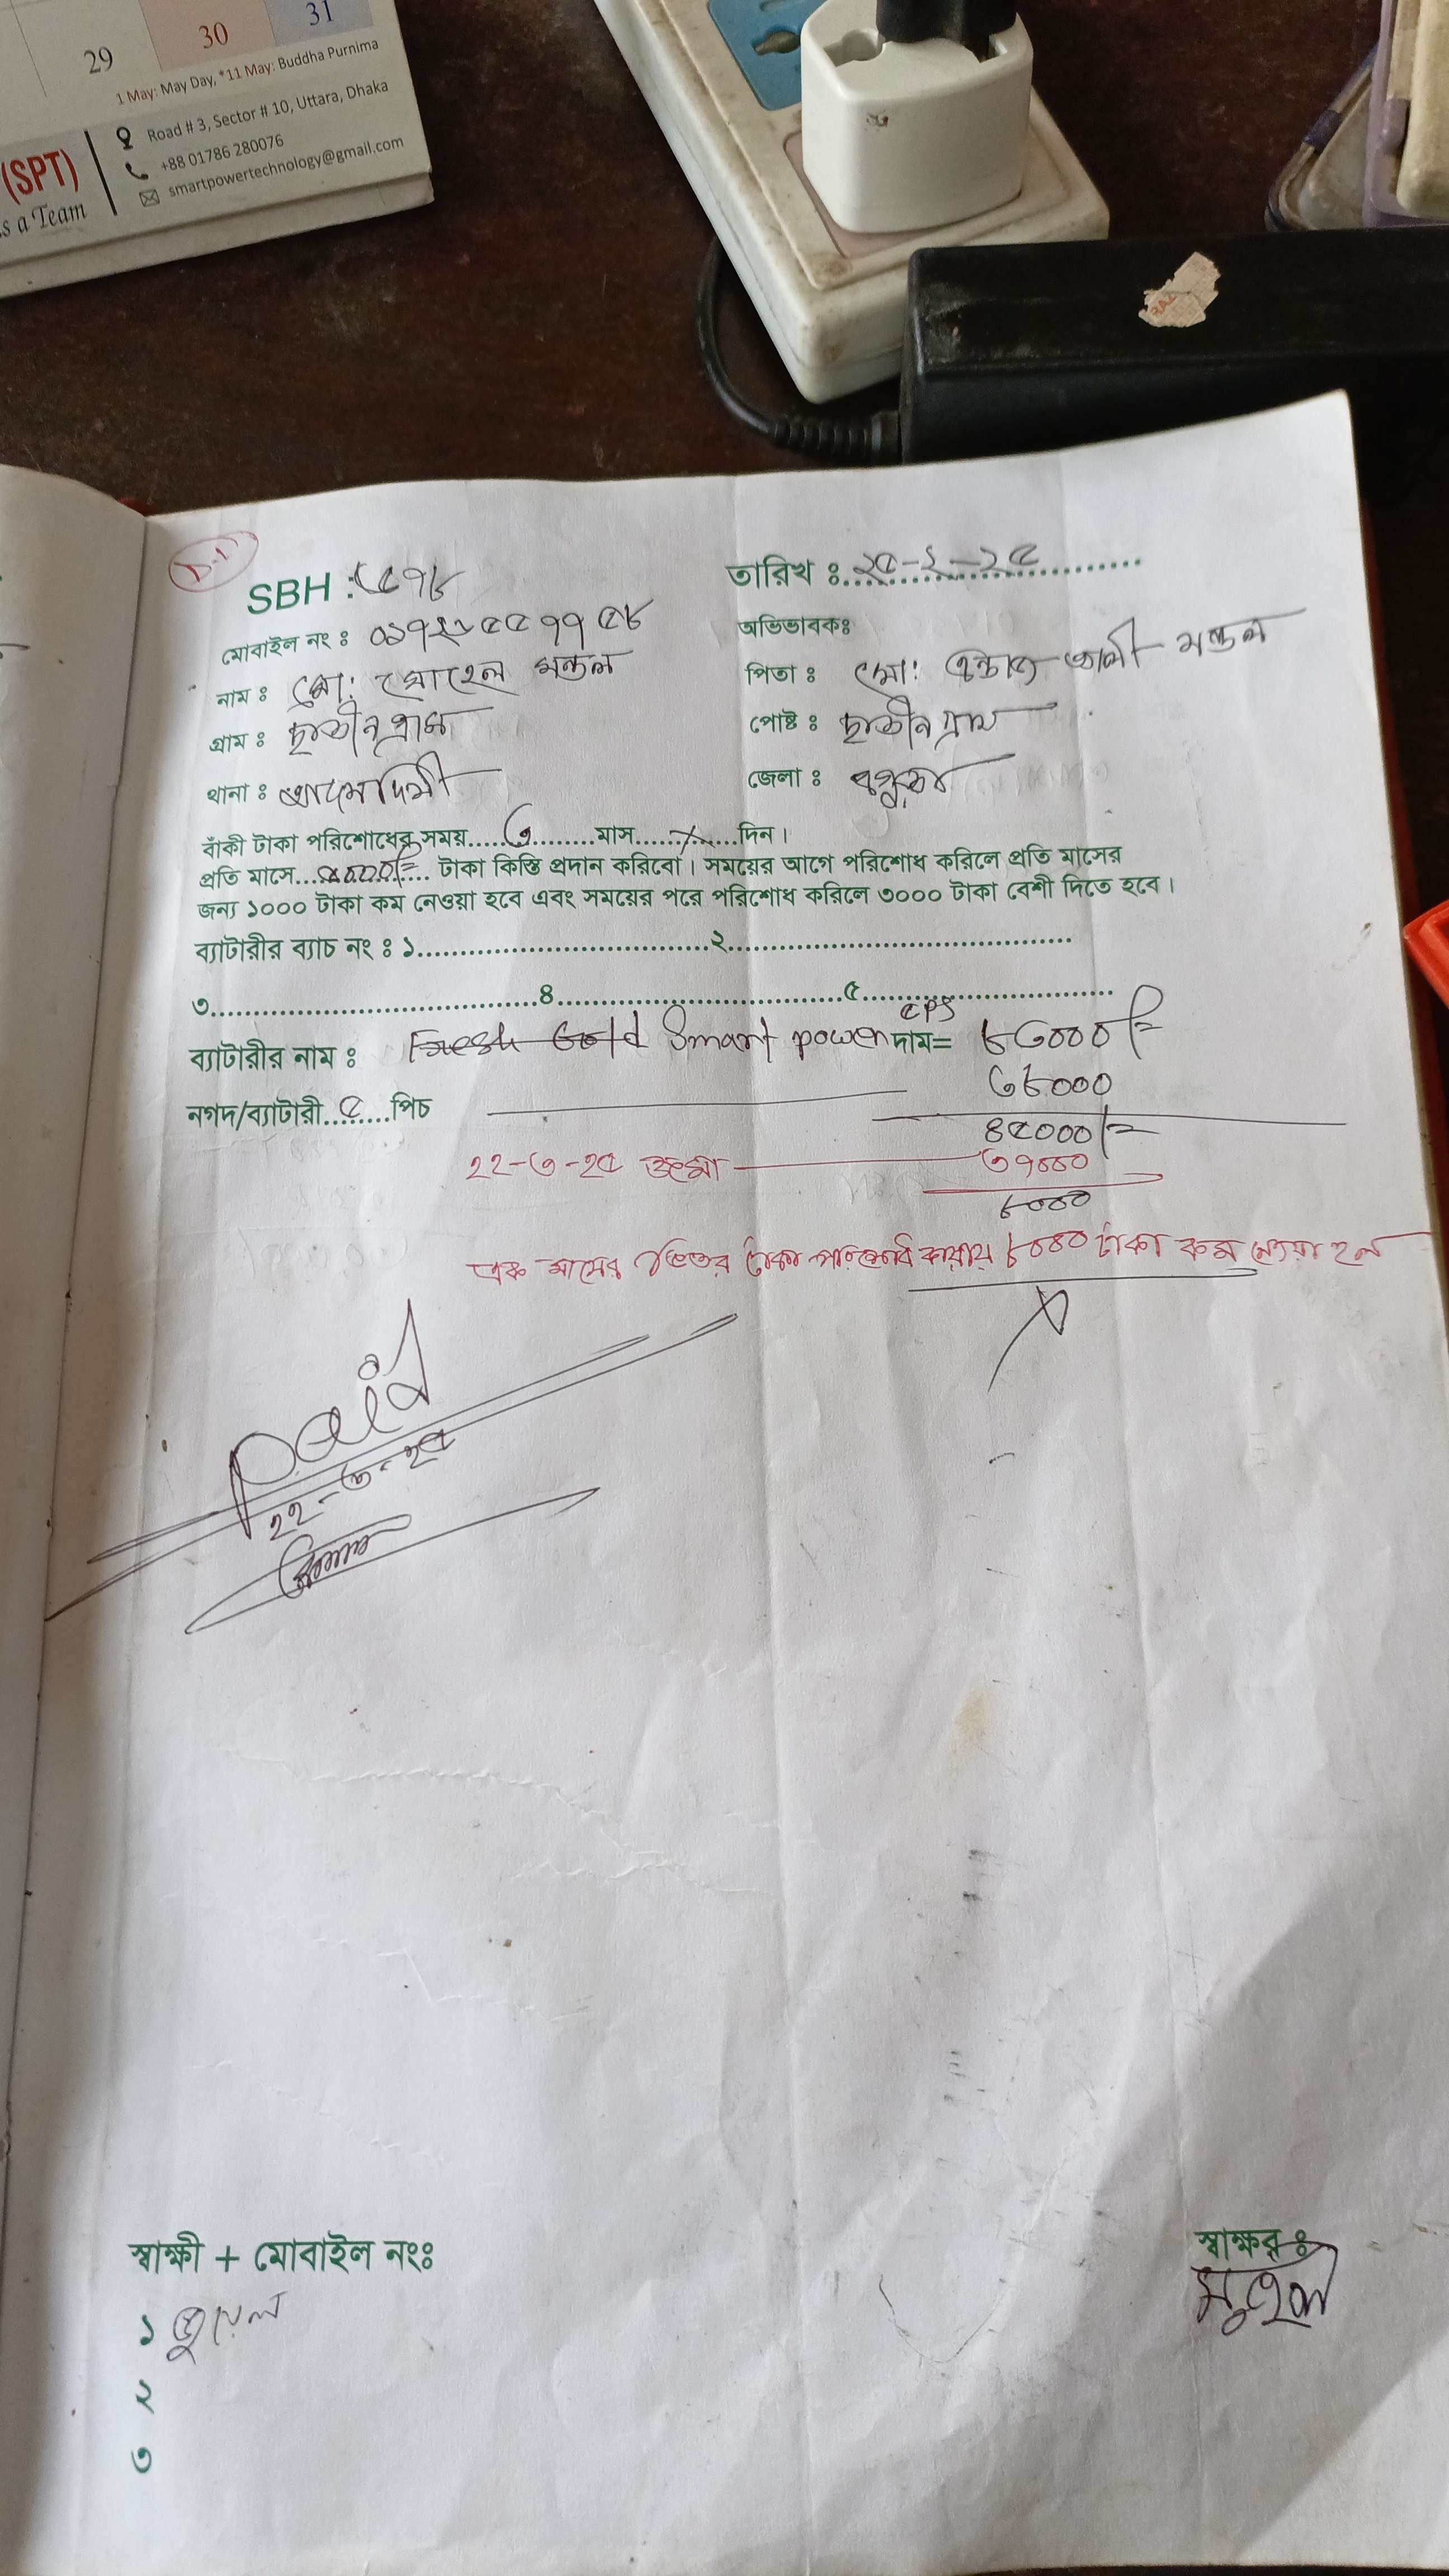 29 30 31
1 May: May Day, *11 May: Buddha Purnima
(SPT)
s a Team
Road # 3, Sector # 10, Uttara, Dhaka
+88 01786 280076
smartpowertechnology@gmail.com
SBH : ৫৭৮
তারিখ ঃ ২৫-২-২৫
মোবাইল নং ঃ
অভিভাবকঃ
নাম ঃ মো: সোহেল মন্ডল
পিতা ঃ মো: আলী মন্ডল
গ্রাম ঃ ছাতীনগ্রাম
পোষ্ট ঃ ছাতীনগ্রাম
থানা ঃ আদমদিঘী
জেলা ঃ বগুড়া
বাঁকী টাকা পরিশোধের সময়.....৩.........মাস......X......দিন।
প্রতি মাসে............... টাকা কিস্তি প্রদান করিবো। সময়ের আগে পরিশোধ করিলে প্রতি মাসের
জন্য ১০০০ টাকা কম নেওয়া হবে এবং সময়ের পরে পরিশোধ করিলে ৩০০০ টাকা বেশী দিতে হবে।
ব্যাটারীর ব্যাচ নং ঃ ১........................................২..............................................
৩.............................................৪........................................৫...................................
ব্যাটারীর নাম ঃ Fresh Gold Smart power eps দাম= ৮৩০০০/=
৩৮০০০
নগদ/ব্যাটারী..৫....পিচ
৪৫০০০/=
২২-৩-২৫ জমা ৩৭০০০
৮০০০
এক মাসের ভিতর টাকা পরিশোধ করায় ৮০০০ টাকা কম নেওয়া হল
X
Paid
২২-৩-২৫
স্বাক্ষী + মোবাইল নংঃ
স্বাক্ষর ঃ
১ জুয়েল
২
৩